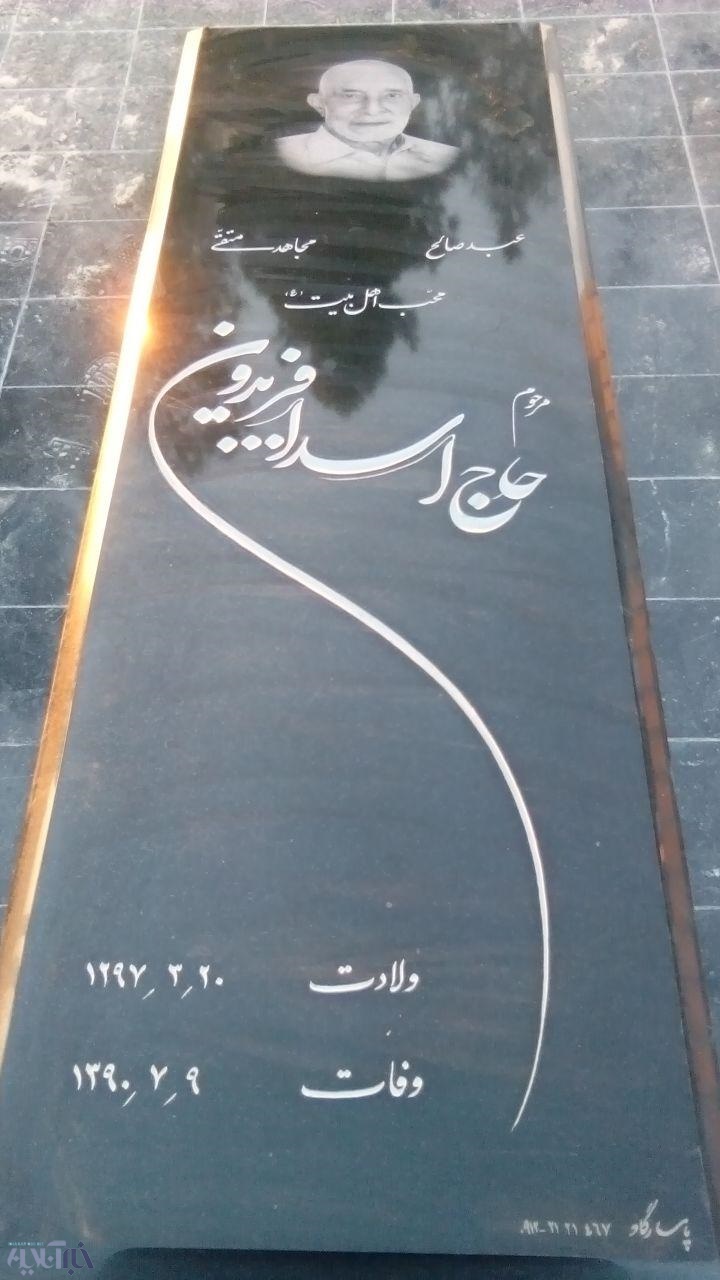 عبد صالح مجاهد متقی
محب اهل بیت (ع)
مرحوم
حاج اسداله فریدون
ولادت ۲۰ / ۳ / ۱۲۹۷
وفات ۹ / ۷ / ۱۳۹۰
پاسارگاد
خبرآنلاین